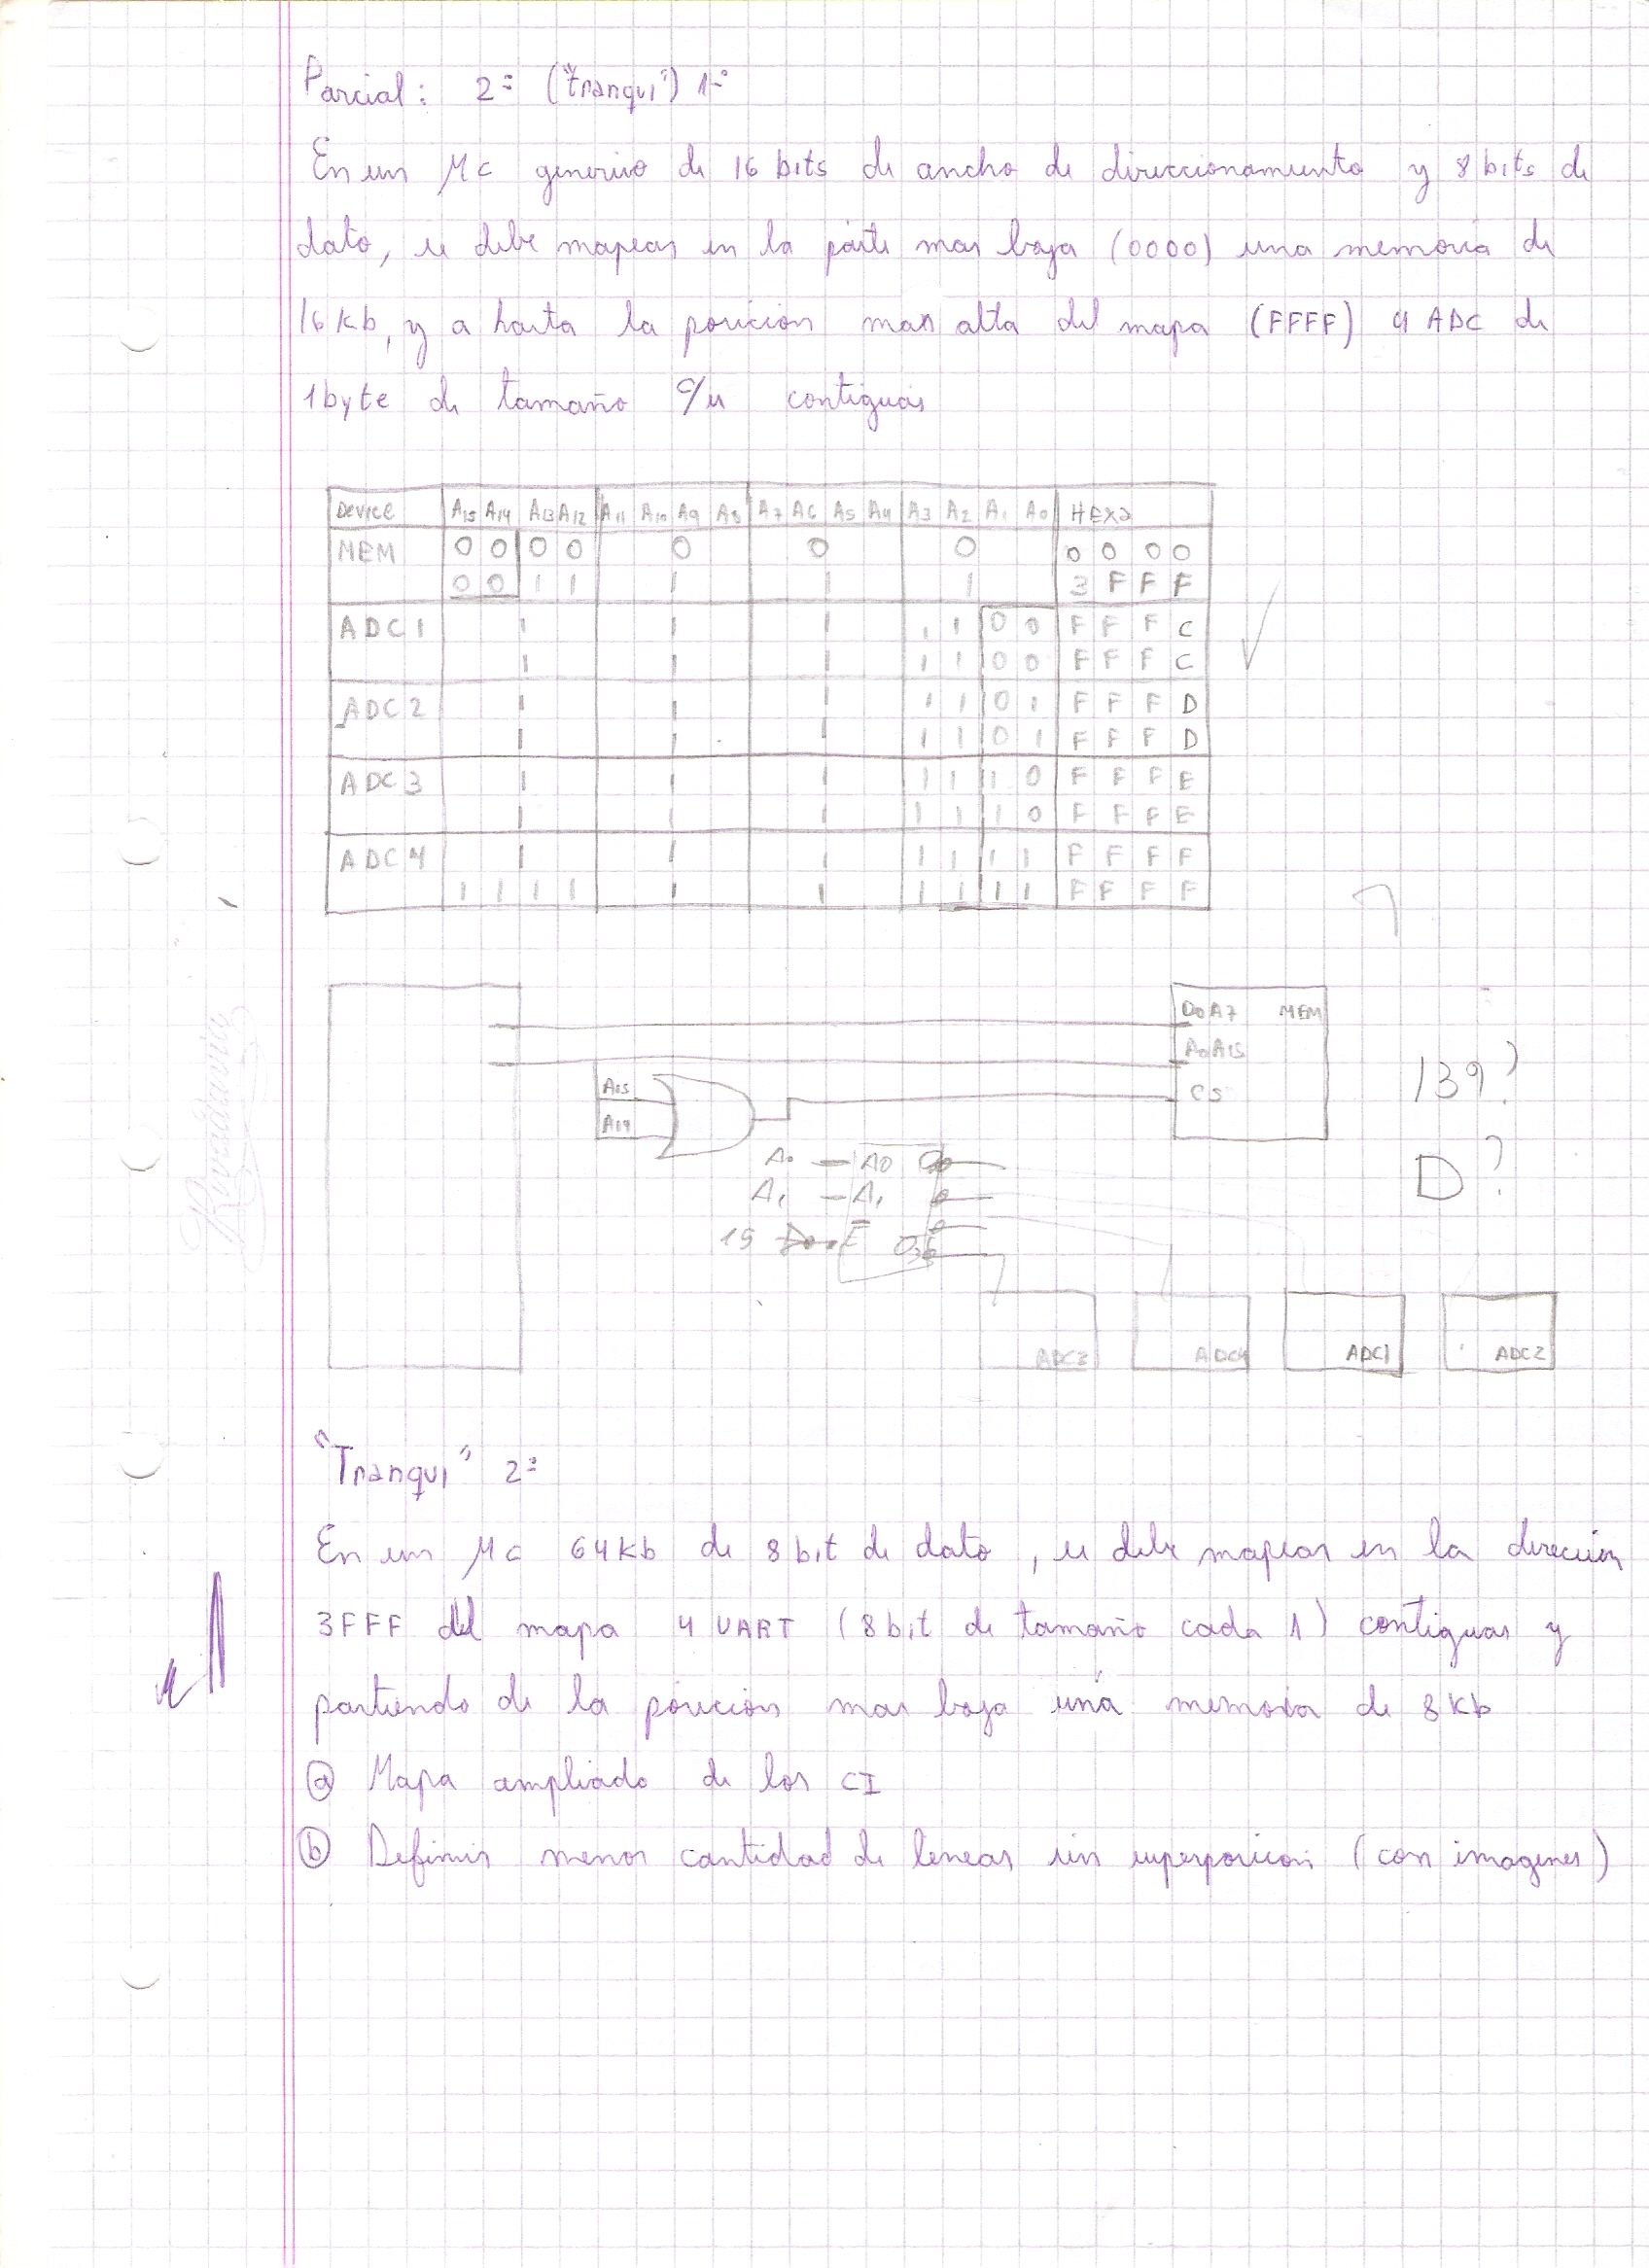 Parcial: 2º ("tranqui") 1º
En un μc generico de 16 bits de ancho de direccionamiento y 8 bits de
dato, se debe mapear en la parte mas baja (0000) una memoria de
16 kb, y a hasta la posicion mas alta del mapa (FFFF) 4 ADC de
1byte de tamaño c/u contiguas
Device A15 A14 A13 A12 A11 A10 A9 A8 A7 A6 A5 A4 A3 A2 A1 A0 HEXa
MEM 0 0 0 0 0 0 0 0 0 0 0
0 0 1 1 1 1 1 3 F F F
ADC1 1 1 1 1 1 0 0 F F F C
1 1 1 1 1 0 0 F F F C
ADC2 1 1 1 1 1 0 1 F F F D
1 1 1 1 1 0 1 F F F D
ADC3 1 1 1 1 1 1 0 F F F E
1 1 1 1 1 1 0 F F F E
ADC4 1 1 1 1 1 1 1 F F F F
1 1 1 1 1 1 1 1 1 1 F F F F
D0A7 MEM
A0A15
A15 CS
A14
139?
A0 A0 O0
A1 A1
D?
15 E O3
ADC3 ADC4 ADC1 ADC2
Rivadavia
"Tranqui" 2º
En un μc 64kb de 8bit de dato, se debe mapear en la direccion
3FFF del mapa 4 UART (8bit de tamaño cada 1) contiguas y
partiendo de la posicion mas baja una memoria de 8kb
a Mapa ampliado de los CI
b Definir menor cantidad de lineas sin superposicion (con imagenes)